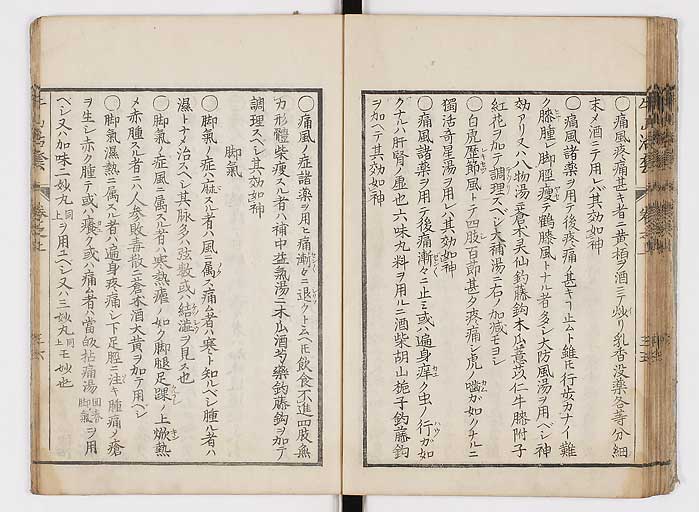 ◯痛風疼痛甚キ者ニ黄栢ヲ酒ニテ炒リ乳香没薬各等分細
末メ酒ニテ用レバ其効如神
◯痛風諸薬ヲ用テ後疼痛ノ甚キハ止ムト雖𪜈行歩カナイ難
ク膝腫レ脚脛痩テ鶴膝風トナル者多シ大防風湯ヲ用ベシ神
効アリ又八物湯ニ蒼朮威灵仙釣藤鈎木瓜薏苡仁牛膝附子
紅花ヲ加テ調理スベシ大補湯ニ右ノ加減モヨシ
◯白虎歴節風トテ四肢百節甚タ疼痛シ虎ノ噛ガ如クナルニ
獨活寄生湯ヲ用レバ其効如神
◯痛風諸薬ヲ用テ後痛漸々ニ止ミ或ハ遍身痒ク虫ノ行ガ如
クナルハ肝腎ノ虚也六味丸料ヲ用ルニ酒柴胡山梔子釣藤鈎
ヲ加ヘテ其効如神
◯痛風ノ症諸薬ヲ用ヒ痛漸々ニ退クト云ヘ𪜈飲食不進四肢無
力形體柴痩スル者ハ補中益氣湯ニ木瓜酒芍薬釣藤鈎ヲ加テ
調理スベシ其効如神
脚氣
◯脚氣ノ症ハ麻スル者ハ風ニ属ス痛ム者ハ寒ト知ルベシ腫ル者ハ
濕トナメ治スベシ其脉多ハ弦數或ハ結澁ヲ見ス也
◯脚氣ノ症風ニ属スル者ハ寒熱瘧ノ如ク脚腿足踝ノ上焮熱
メ赤腫スル者ニハ人参敗毒散ニ蒼朮酒大黄ヲ加テ用ベシ
◯脚氣濕熱ニ属スル者ハ遍身疼痛シ下足脛ニ注キ腫痛メ瘡
ヲ生シ赤ク腫テ或ハ痒ク或ハ痛ム者ハ當皈拈痛湯 回春脚氣 ヲ用
ベシ又ハ加味二妙丸 同上 ヲ用ユベシ又ハ三妙丸 同上 モ妙也